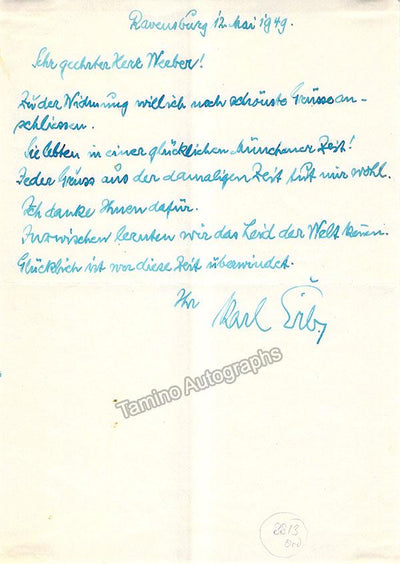 Ravensburg 12. Mai 1949.
Sehr geehrter Herr Weeber!
Zu der Widmung will ich noch schönste Grüsse an-
schliessen.
Sie lebten in einer glücklichen Münchener Zeit!
Jeder Gruss aus der damaligen Zeit tut mir wohl.
Ich danke Ihnen dafür.
Inzwischen lernten wir das Leid der Welt kennen.
Glücklich ist wer diese Zeit überwindet.
Ihr Karl Erb,
Tamino Autographs
2813